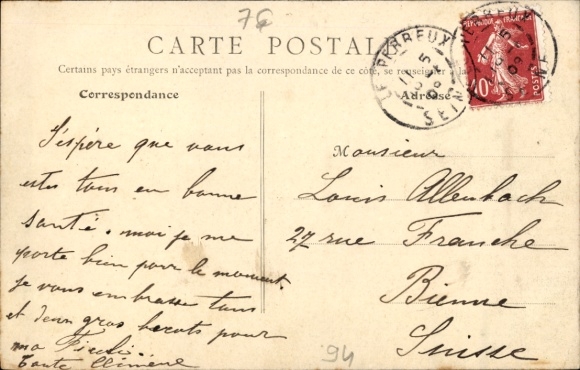 76
CARTE POSTALE
Certains pays étrangers n'acceptant pas la correspondance de ce côté, se renseigner à la
Correspondance
Adresse
LE PERREUX
SEINE
REPUBLIQUE FRANÇAISE
40
POSTES
J'espère que vous
etes tous en bonne
santé. moi je me
porte bien pour le moment.
je vous embrasse tous
et deux gros becots pour
ma
Tante Clémence
Monsieur
Louis Allenbach
27 rue Franche
Bienne
Suisse
94